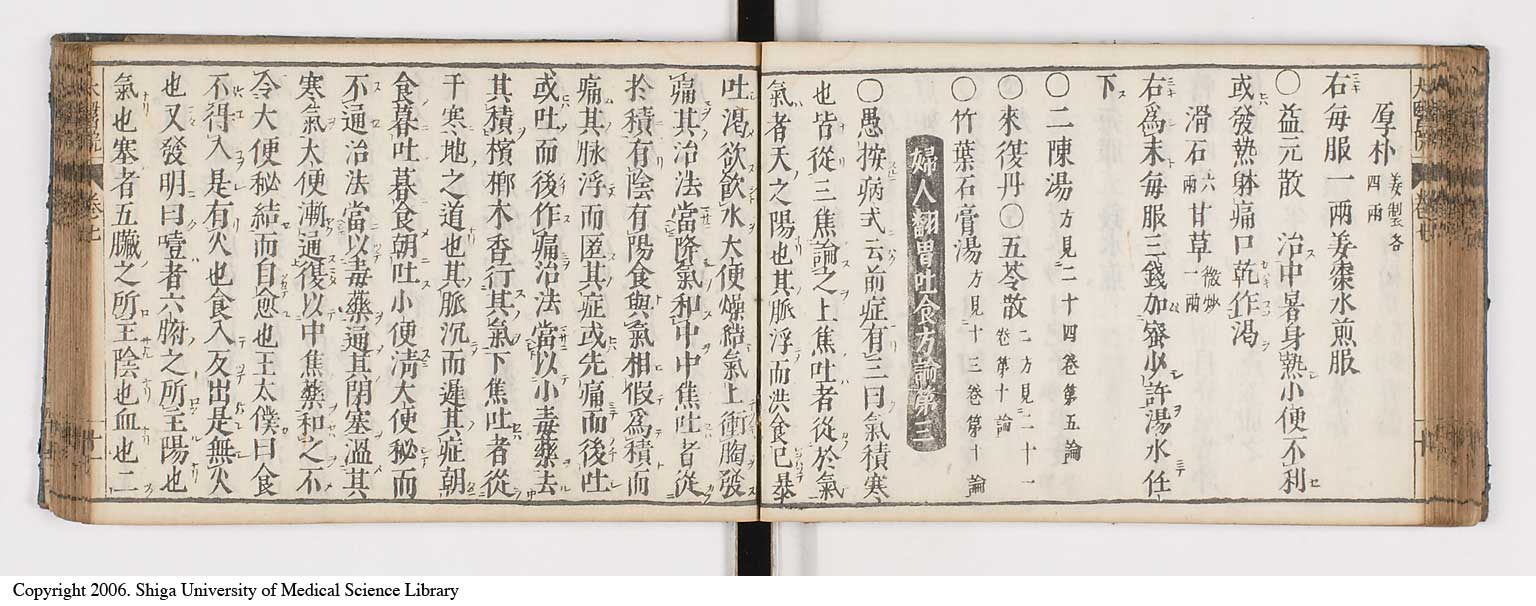 厚朴姜製各四兩
右毎服一兩姜棗水煎服
〇益元散 治中暑身熱小便不利
或發熱躰痛口乾作渇
滑石六兩甘草一兩微炒
右爲末毎服三錢加蜜少許湯水任
下
〇二陳湯方見二十四卷第五論
〇來復丹〇五苓散二方見二十一卷第十論
〇竹葉石膏湯方見十三卷第十論
婦人翻胃吐食方論第三
〇愚按病式云前症有三曰氣積寒
也皆從三焦論之上焦吐者從於氣
氣者天之陽也其脈浮而洪食已暴
吐渇欲飲水大便燥結氣上衝胸發
痛其治法當降氣和中中焦吐者從
於積有陰有陽食與氣相假爲積而
痛其脉浮而匿其症或先痛而後吐
或吐而後作痛治法當以小毒藥去
其積檳榔木香行其氣下焦吐者從
于寒地之道也其脈沉而遲其症朝
食暮吐暮食朝吐小便淸大便秘而
不通治法當以毒藥通其閉塞溫其
寒氣大便漸通復以中焦藥和之不
令大便秘結而自愈也王太僕曰食
不得入是有火也食入反出是無火
也又發明曰噎者六腑之所主陽也
氣也塞者五臟之所主陰也血也二
卷七
十一
Copyright 2006. Shiga University of Medical Science Library